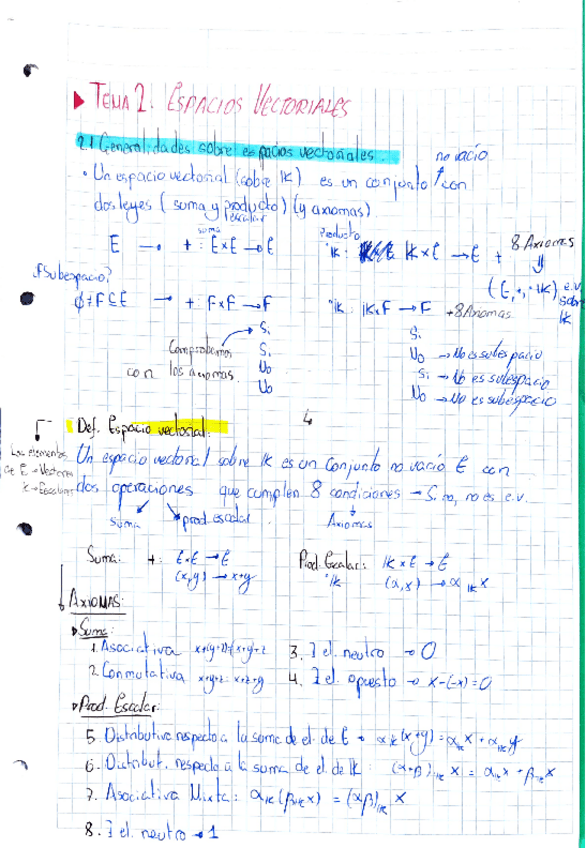 ▶ TEMA 2. ESPACIOS VECTORIALES
2.1 Generalidades sobre espacios vectoriales.
no vacío
• Un espacio vectorial (sobre IK) es un conjunto ↑ con
dos leyes (suma y producto) (y axiomas).
escalar
E → + : E×E → E
suma
Producto
·IK : IK×E → E + 8 Axiomas
⇓
(E,+,·IK) e.v. sobre IK
¿Subespacio?
∅≠F⊆E → + : F×F → F
·IK : IK×F → F +8 Axiomas
Comprobamos con los axiomas
Si Si
Si No → No es subespacio
No Si → No es subespacio
No No → No es subespacio
4
Def. Espacio vectorial:
Los elementos de E → Vectores
K → Escalares
Un espacio vectorial sobre IK es un conjunto no vacío E con
dos operaciones que cumplen 8 condiciones → Si no, no es e.v.
suma prod. escalar. Axiomas
Suma: + : E×E → E Prod. Escalar: IK×E → E
(x,y) → x+y ·IK (α,x) → α·IK x
AXIOMAS:
▶ Suma:
1. Asociativa x+(y+z)=(x+y)+z 3. ∃ el. neutro → 0
2. Conmutativa x+y+z = x+z+y 4. ∃ el. opuesto → x-(-x)=0
▶ Prod. Escalar:
5. Distributiva respecto a la suma de el. de E → α·IK(x+y)=α·IK x+α·IK y
6. Distribut. respecto a la suma de el. de IK : (α+β)·IK x = α·IK x + β·IK x
7. Asociativa Mixta: α·IK(β·IK x) = (αβ)·IK x
8. ∃ el. neutro → 1